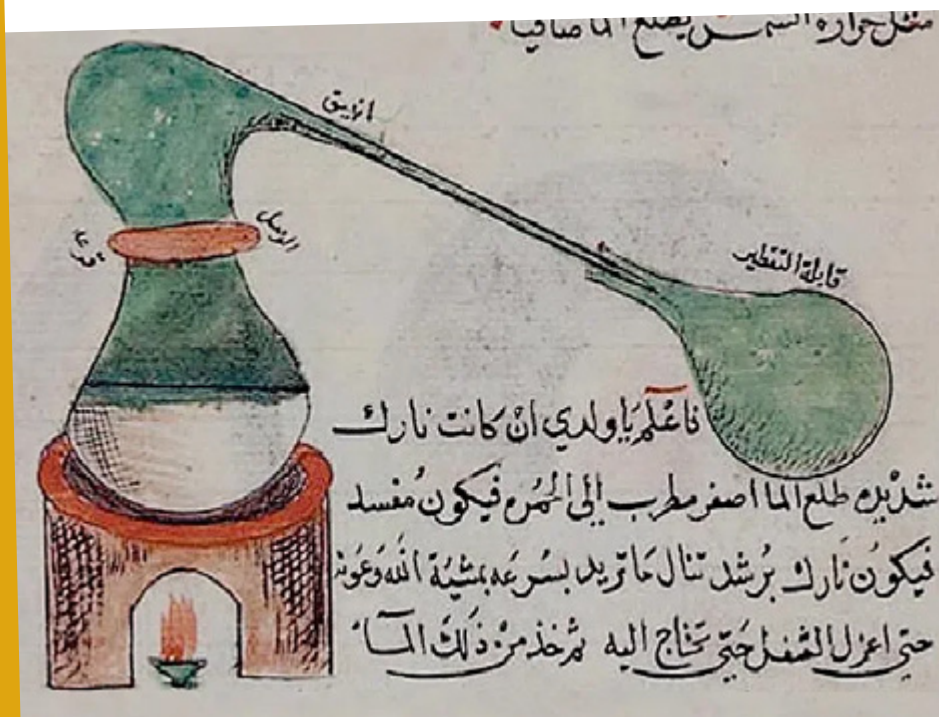 مثل حرارة الشمس يطلع الما صافيا
انبيق
الوصل
قرعة
قابلة التقطير
فاعْلم يا ولدي ان كانت نارك
شديده طلع الما اصفر مطرب الى الحمره فيكون مفسد
فيكون نارك برشد تنال ما تريد بسرعه بمشية الله وعونه
حتى اعزل الثفل حتى تحتاج اليه ثم خذ من ذلك الماء